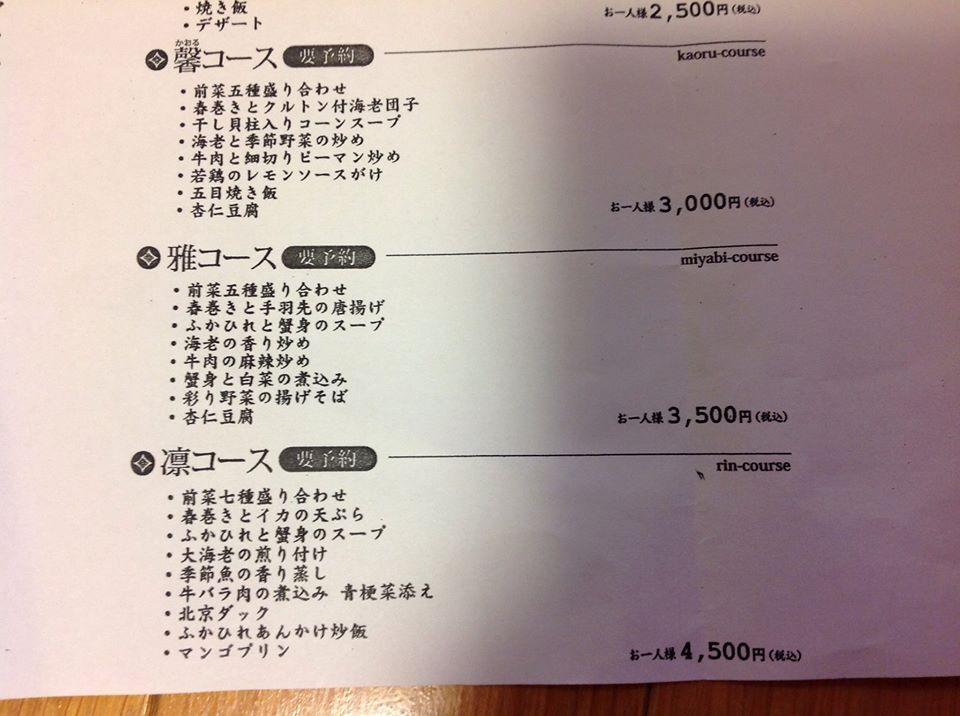 ・焼き飯
・デザート
お一人様 2,500円(税込)
かおる
馨コース 要予約
kaoru-course
・前菜五種盛り合わせ
・春巻きとクルトン付海老団子
・干し貝柱入りコーンスープ
・海老と季節野菜の炒め
・牛肉と細切りピーマン炒め
・若鶏のレモンソースがけ
・五目焼き飯
・杏仁豆腐
お一人様 3,000円(税込)
雅コース 要予約
miyabi-course
・前菜五種盛り合わせ
・春巻きと手羽先の唐揚げ
・ふかひれと蟹身のスープ
・海老の香り炒め
・牛肉の麻辣炒め
・蟹身と白菜の煮込み
・彩り野菜の揚げそば
・杏仁豆腐
お一人様 3,500円(税込)
凛コース 要予約
rin-course
・前菜七種盛り合わせ
・春巻きとイカの天ぷら
・ふかひれと蟹身のスープ
・大海老の煎り付け
・季節魚の香り蒸し
・牛バラ肉の煮込み 青梗菜添え
・北京ダック
・ふかひれあんかけ炒飯
・マンゴプリン
お一人様 4,500円(税込)